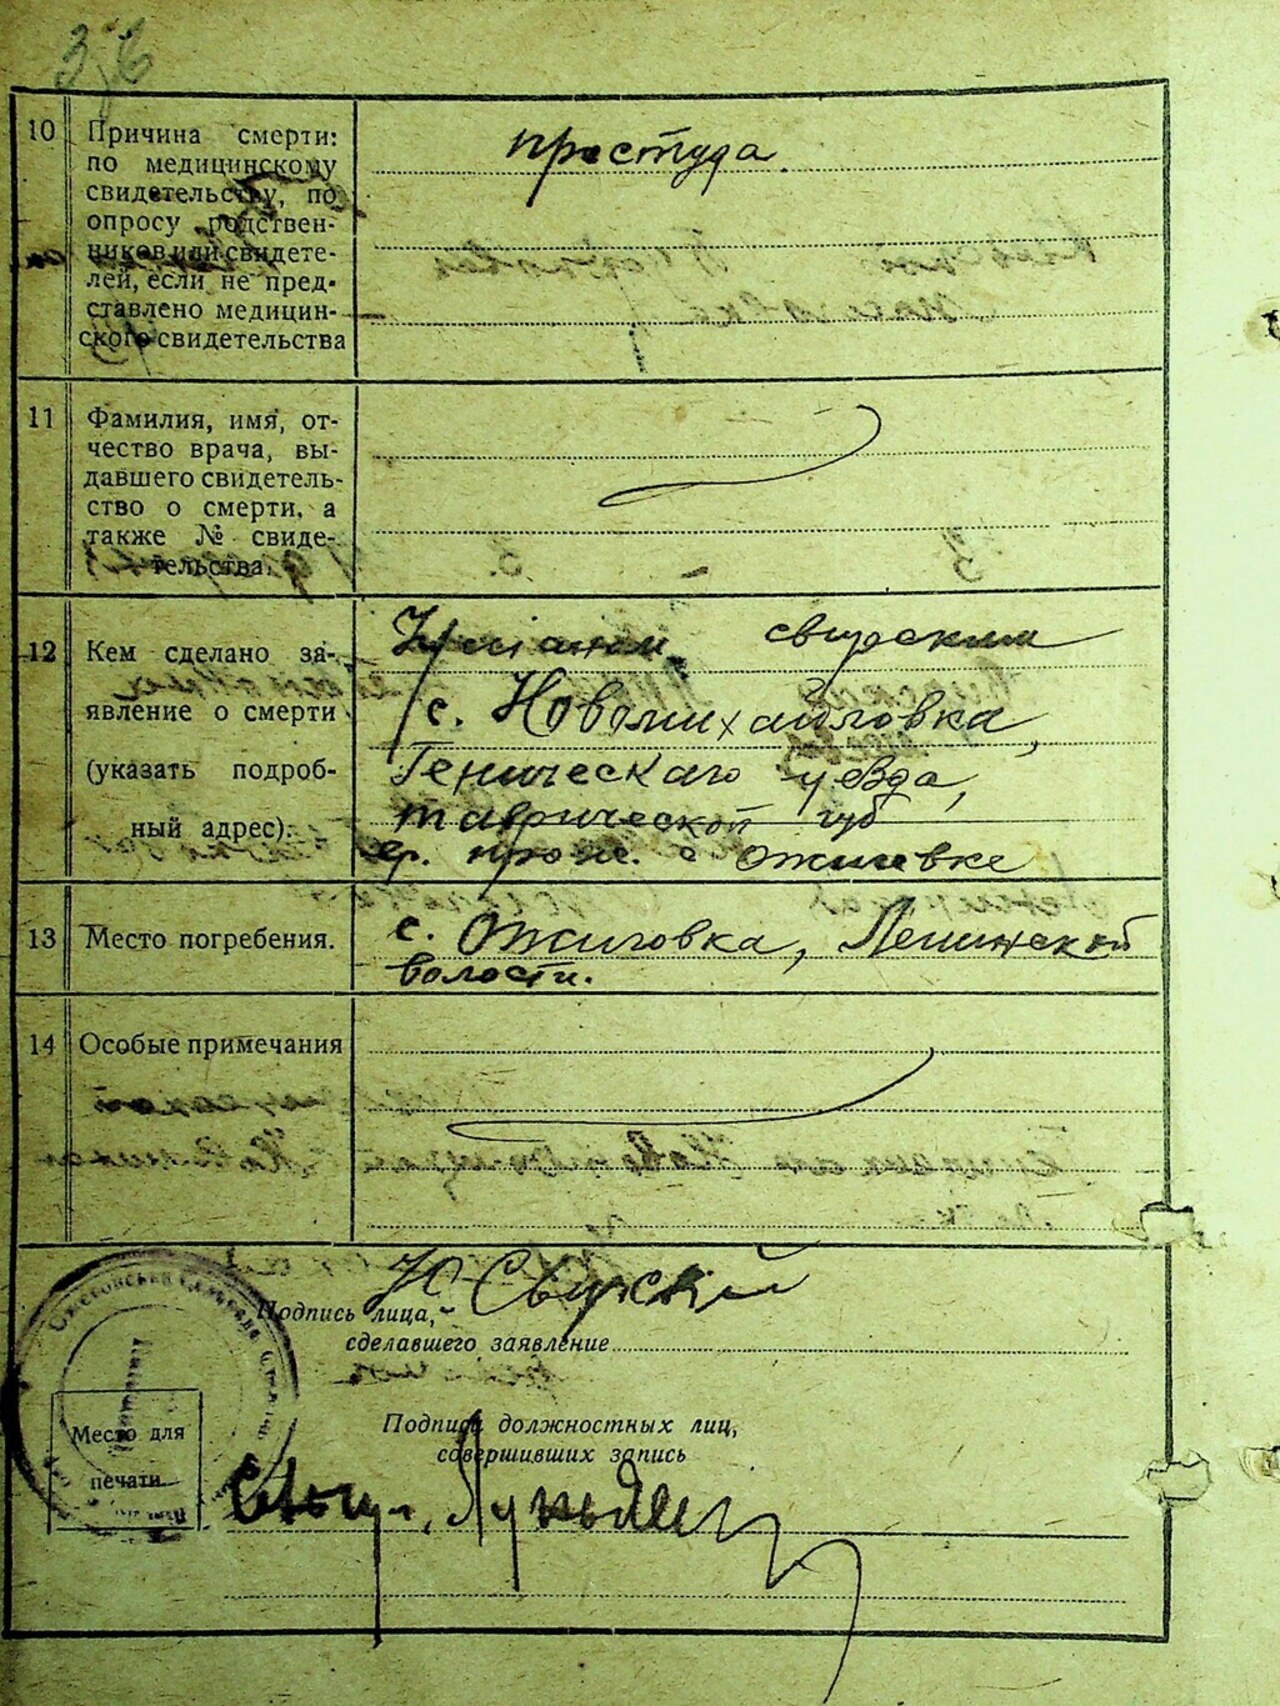 36
10
Причина смерти:
по медицинскому
свидетельству, по
опросу родствен-
ников или свидете-
лей, если не пред-
ставлено медицин-
ского свидетельства
простуда.
11
Фамилия, имя, от-
чество врача, вы-
давшего свидетель-
ство о смерти, а
также № свиде-
тельства.
12
Кем сделано за-
явление о смерти
(указать подроб-
ный адрес).
свирским
с. Новомихайловка,
Генического уезда,
таврической губ
вр. прож. с Ожиговке
13
Место погребения.
с. Ожиговка, Ленинской
волости.
14
Особые примечания
Ю Свирский
Подпись лица,
сделавшего заявление
Подписи должностных лиц,
совершивших запись
Место для
печати